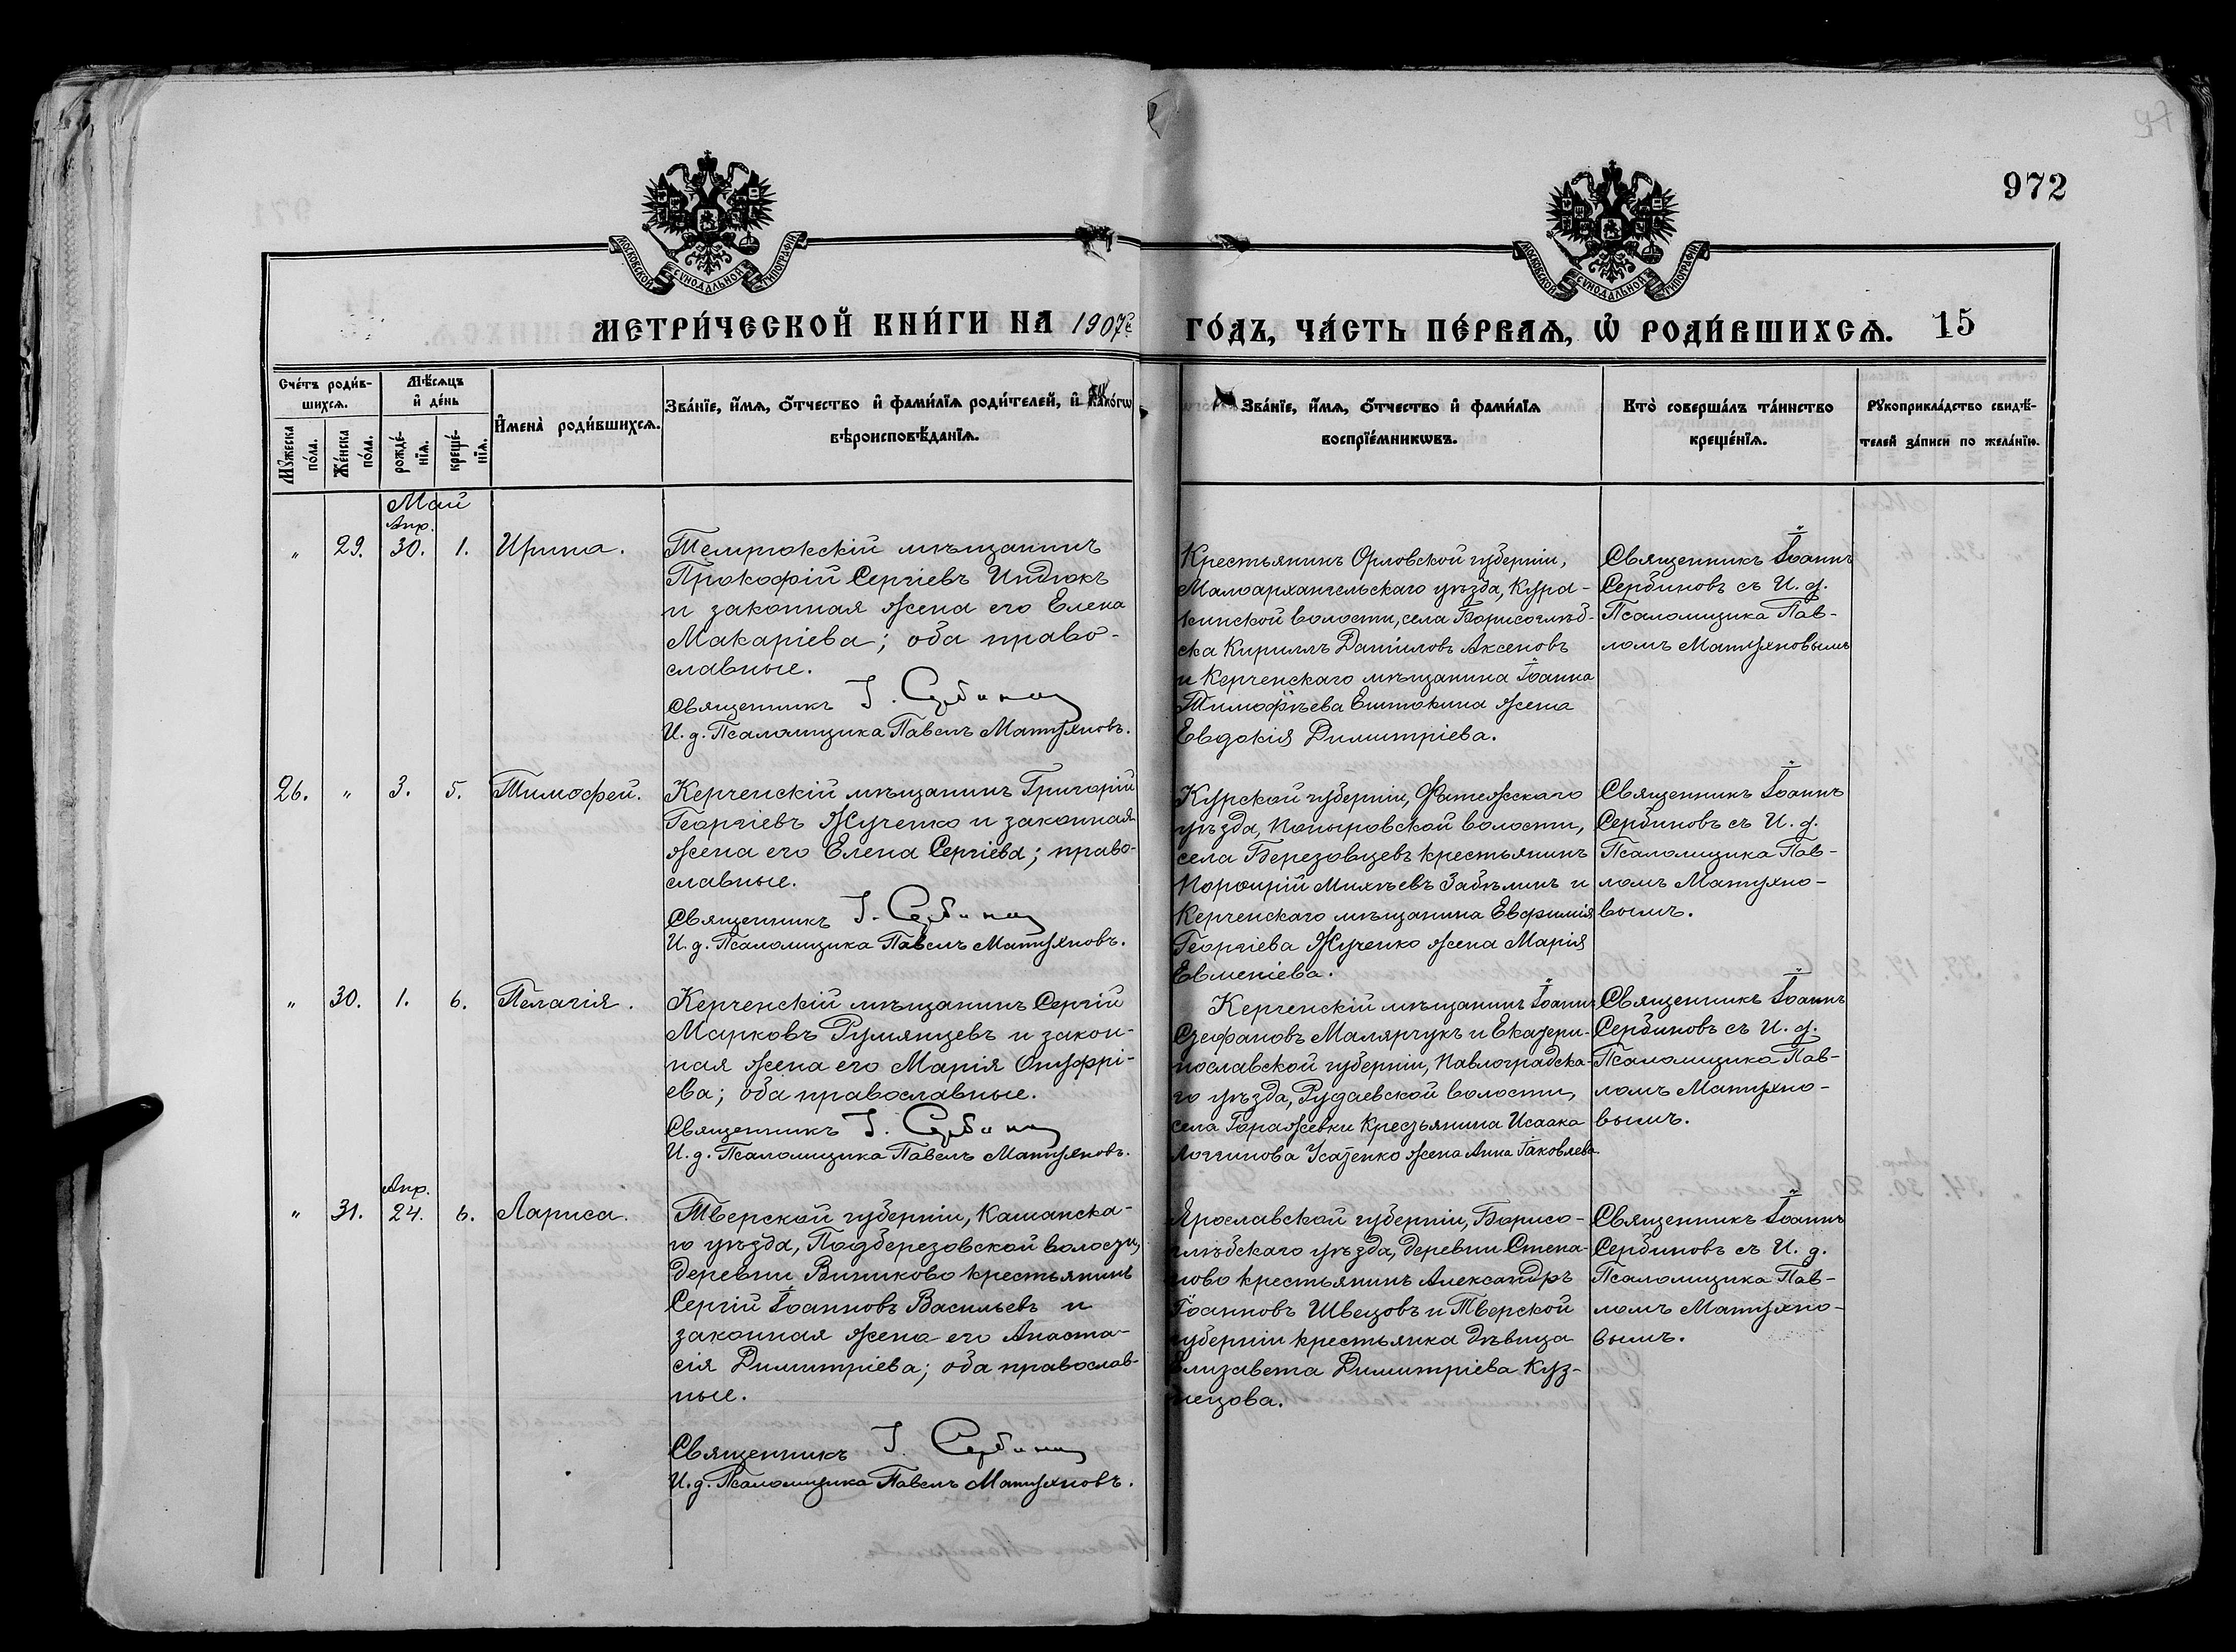 972
МОСКОВСКОЙ СѴНОДАЛЬНОЙ ТИПОГРАФІИ
МОСКОВСКОЙ СѴНОДАЛЬНОЙ ТИПОГРАФІИ
МЕТРИ́ЧЕСКОЙ КНИ́ГИ НА 1907й
ГО́ДЪ, ЧА́СТЬ ПЕ́РВАѦ, Ѡ РОДИ́ВШИХСѦ. 15
Сче́тъ роди́в-
шихсѧ.
Мѣ́сѧцъ
и҆ де́нь
Мꙋ́жеска
по́ла.
Же́нска
по́ла.
рожде́-
нїѧ.
креще́-
нїѧ.
И҆мена̀ роди́вшихсѧ.
Зва́нїе, и҆́мѧ, ѻ҆́тчество и҆ фами́лїѧ роди́телей, и҆ како́гѡ
вѣроисповѣ́данїѧ.
Зва́нїе, и҆́мѧ, ѻ҆́тчество и҆ фами́лїѧ
воспрїе́мникѡвъ.
Кто̀ соверша́лъ та́инство
креще́нїѧ.
Рꙋкоприкла́дство свидѣ́-
телей за́писи по жела́нїю.
Май
Апр.
„ 29. 30. 1. Ирина.
Темрюкскій мѣщанинъ
Прокофій Сергіевъ Индюкъ
и законная жена его Елена
Макаріева; оба право-
славные.
Священникъ І. Сербинов
И. д. Псаломщика Павелъ Матухновъ.
Крестьянинъ Орловской губерніи,
Малоархангельскаго уѣзда, Кура-
кинской волости, села Борисоглѣб-
ска Кириллъ Даніиловъ Аксеновъ
и Керченскаго мѣщанина Іоанна
Тимофѣева Евтюкина жена
Евдокія Димитріева.
Священникъ Іоаннъ
Сербиновъ съ И. д.
Псаломщика Пав-
ломъ Матухновымъ
26. „ 3. 5. Тимофей.
Керченскій мѣщанинъ Григорій
Георгіевъ Жученко и законная
жена его Елена Сергіева; право-
славные.
Священникъ І. Сербинов
И. д. Псаломщика Павелъ Матухновъ.
Курской губерніи, Фатежскаго
уѣзда, Поныровской волости,
села Березовцевъ крестьянинъ
Порфирій Михѣевъ Забѣлинъ и
Керченскаго мѣщанина Евфимія
Георгіева Жученко жена Марія
Евменіева.
Священникъ Іоаннъ
Сербиновъ съ И. д.
Псаломщика Пав-
ломъ Матухно-
вымъ.
„ 30. 1. 6. Пелагія.
Керченскій мѣщанинъ Сергій
Марковъ Румянцевъ и закон-
ная жена его Марія Онуфрі-
ева; оба православные.
Священникъ І. Сербинов
И. д. Псаломщика Павелъ Матухновъ.
Керченскій мѣщанинъ Іоаннъ
Стефановъ Малярчукъ и Екатери-
нославской губерніи, Павлоградска-
го уѣзда, Рудаевской волости,
села Гаражевки Крестьянина Исаака
Логгинова Усатенко жена Анна Іаковлева.
Священникъ Іоаннъ
Сербиновъ съ И. д.
Псаломщика Пав-
ломъ Матухно-
вымъ.
Апр.
„ 31. 24. 6. Лариса.
Тверской губерніи, Кашинска-
го уѣзда, Подберезовской волости,
деревни Виниково крестьянинъ
Сергій Іоанновъ Васильевъ и
законная жена его Анаста-
сія Димитріева; оба православ-
ные.
Священникъ І. Сербинов
И. д. Псаломщика Павелъ Матухновъ.
Ярославской губерніи, Борисо-
глѣбскаго уѣзда, деревни Степа-
ново крестьянинъ Александръ
Іоанновъ Швецовъ и Тверской
губерніи крестьянка дѣвица
Елизавета Димитріева Куз-
нецова.
Священникъ Іоаннъ
Сербиновъ съ И. д.
Псаломщика Пав-
ломъ Матухно-
вымъ.